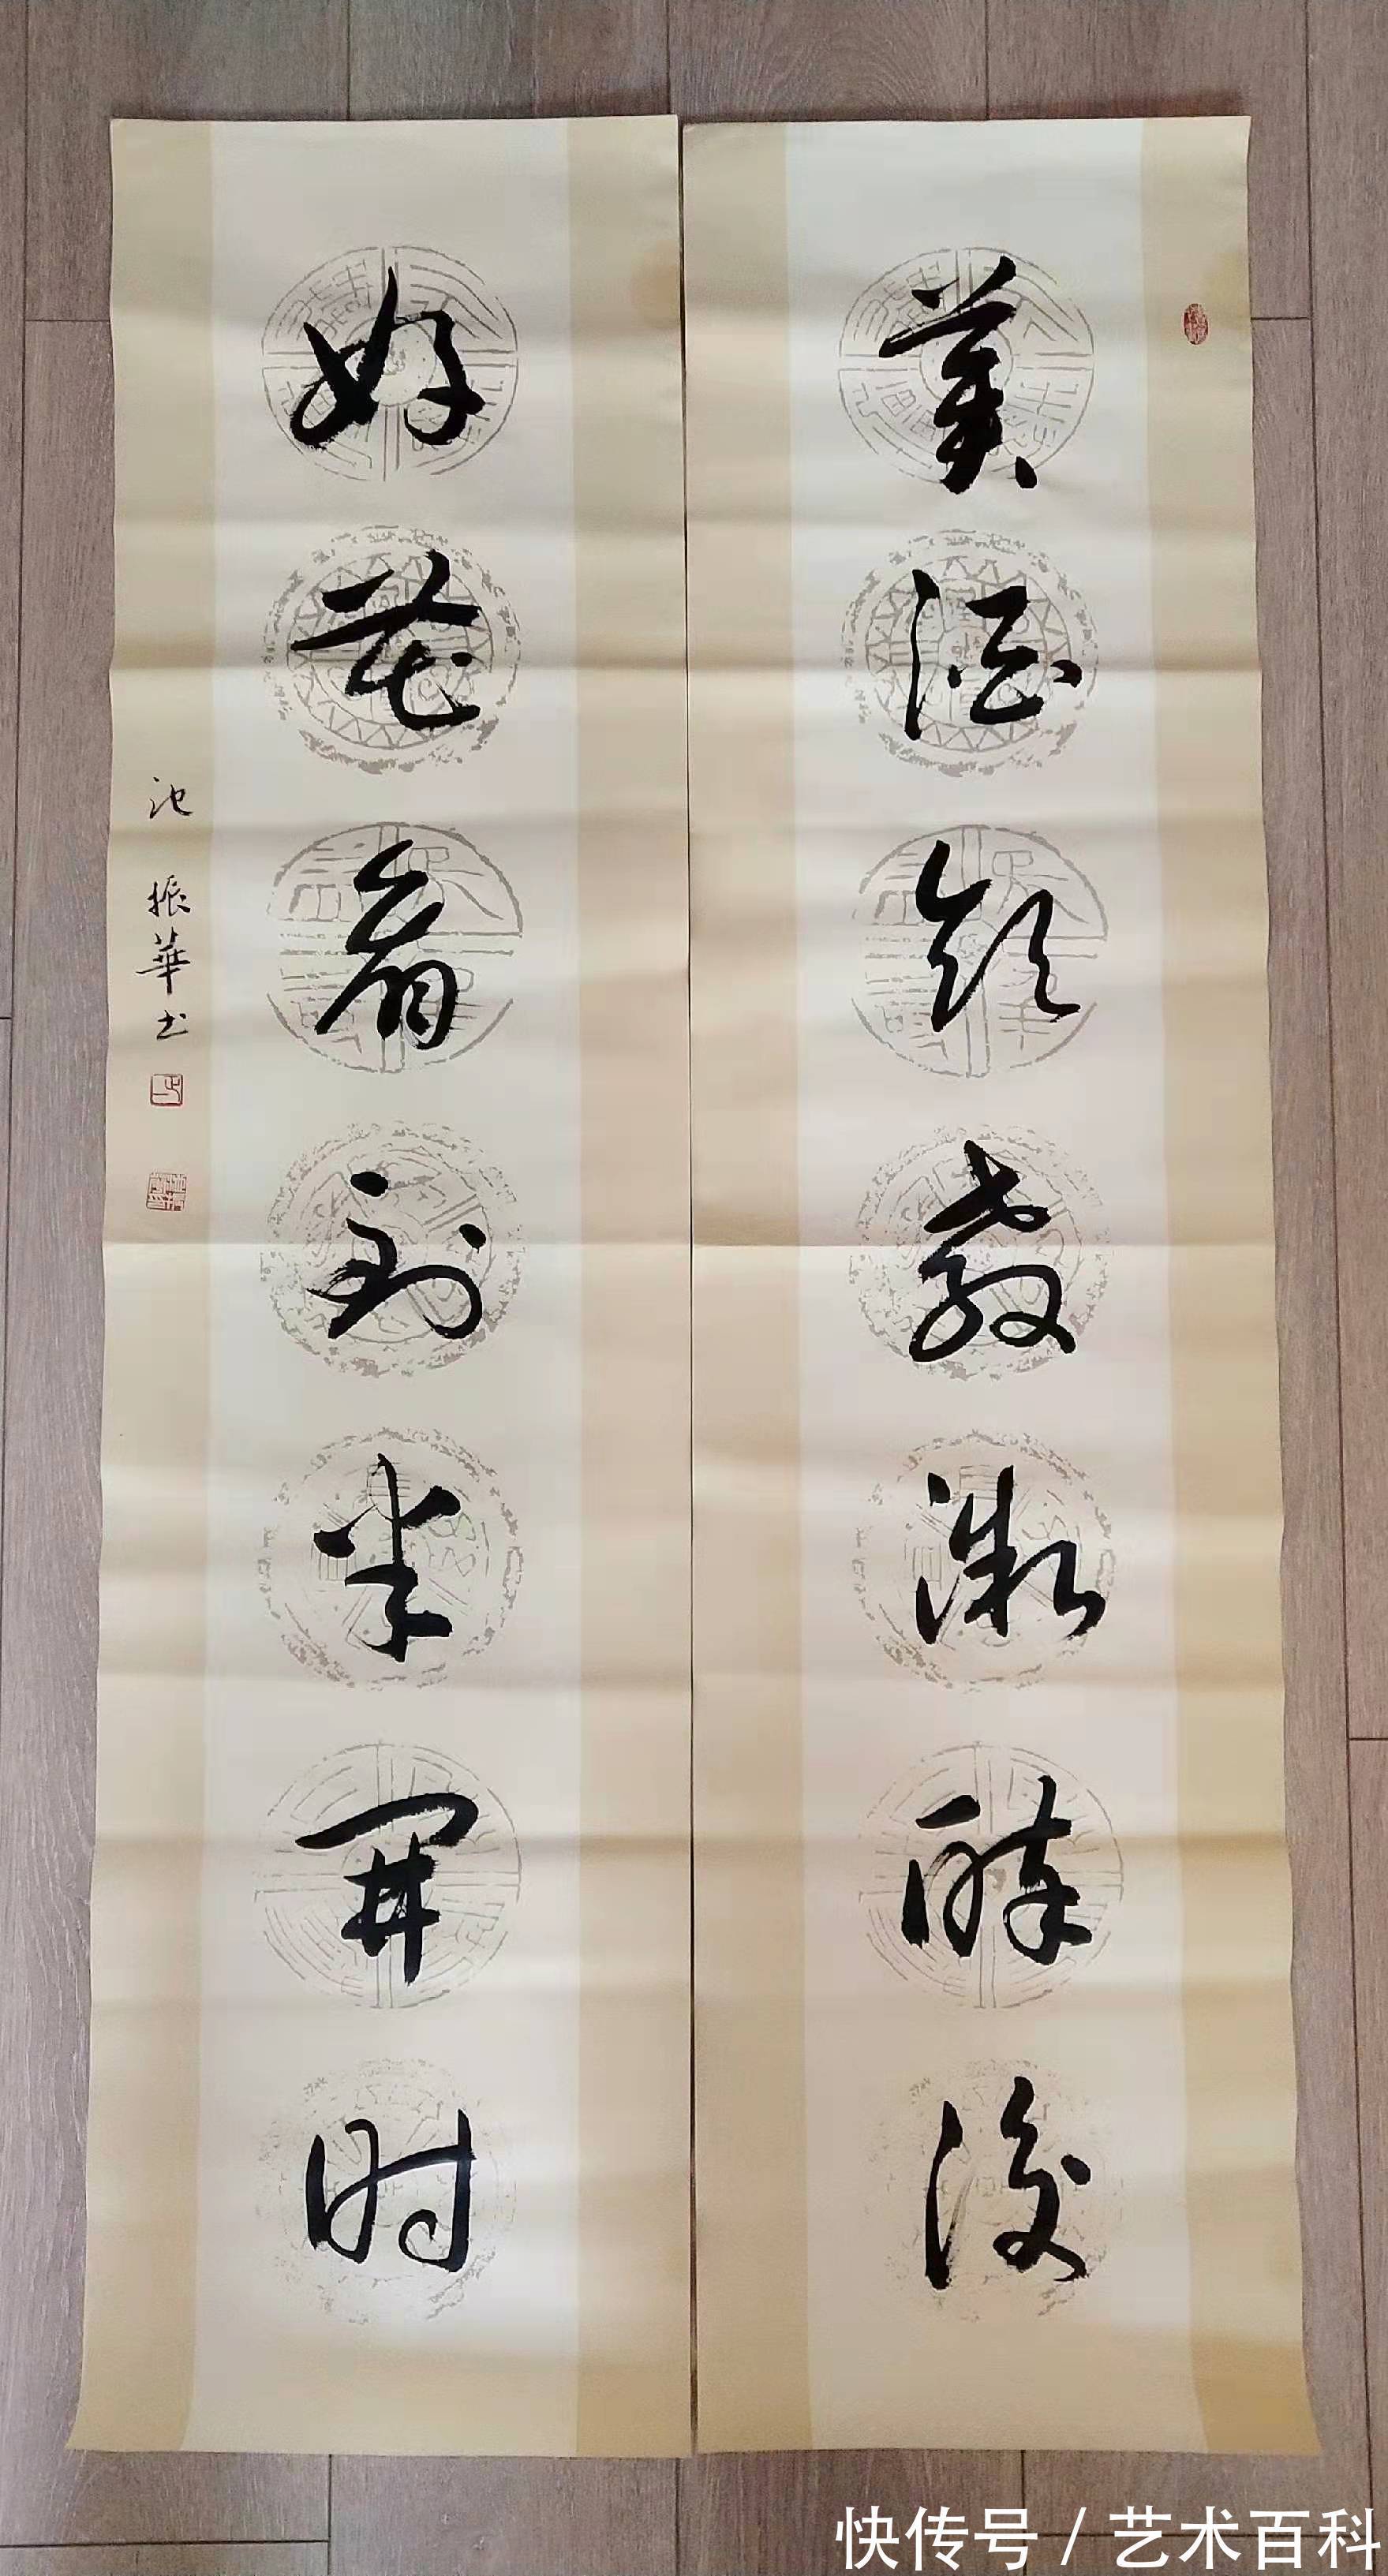 美酒飲教微醉後
好花看到半開時
池振華书
快传号／艺术百科